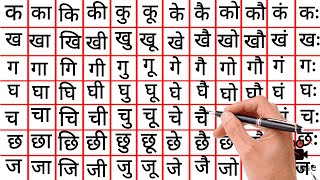 क का कि की कु कू के कै को कौ कं कः
ख खा खि खी खु खू खे खै खो खौ खं खः
ग गा गि गी गु गू गे गै गो गौ गं गः
घ घा घि घी घु घू घे घै घो घौ घं घः
च चा चि ची चु चू चे चै चः
छ छा छि छी छु छू छे छै छः
ज जा जि जी जु जू जे जै जो